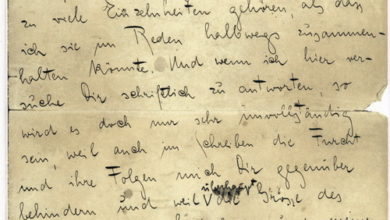 zu viele Einzelheiten gehören, als dass
ich sie im Reden halbwegs zusammen-
halten könnte. Und wenn ich hier ver-
suche Dir schriftlich zu antworten, so
wird es doch nur sehr unvollständig
sein, weil auch im Schreiben die Furcht
und ihre Folgen mich Dir gegenüber
behindern und weil die Grösse des